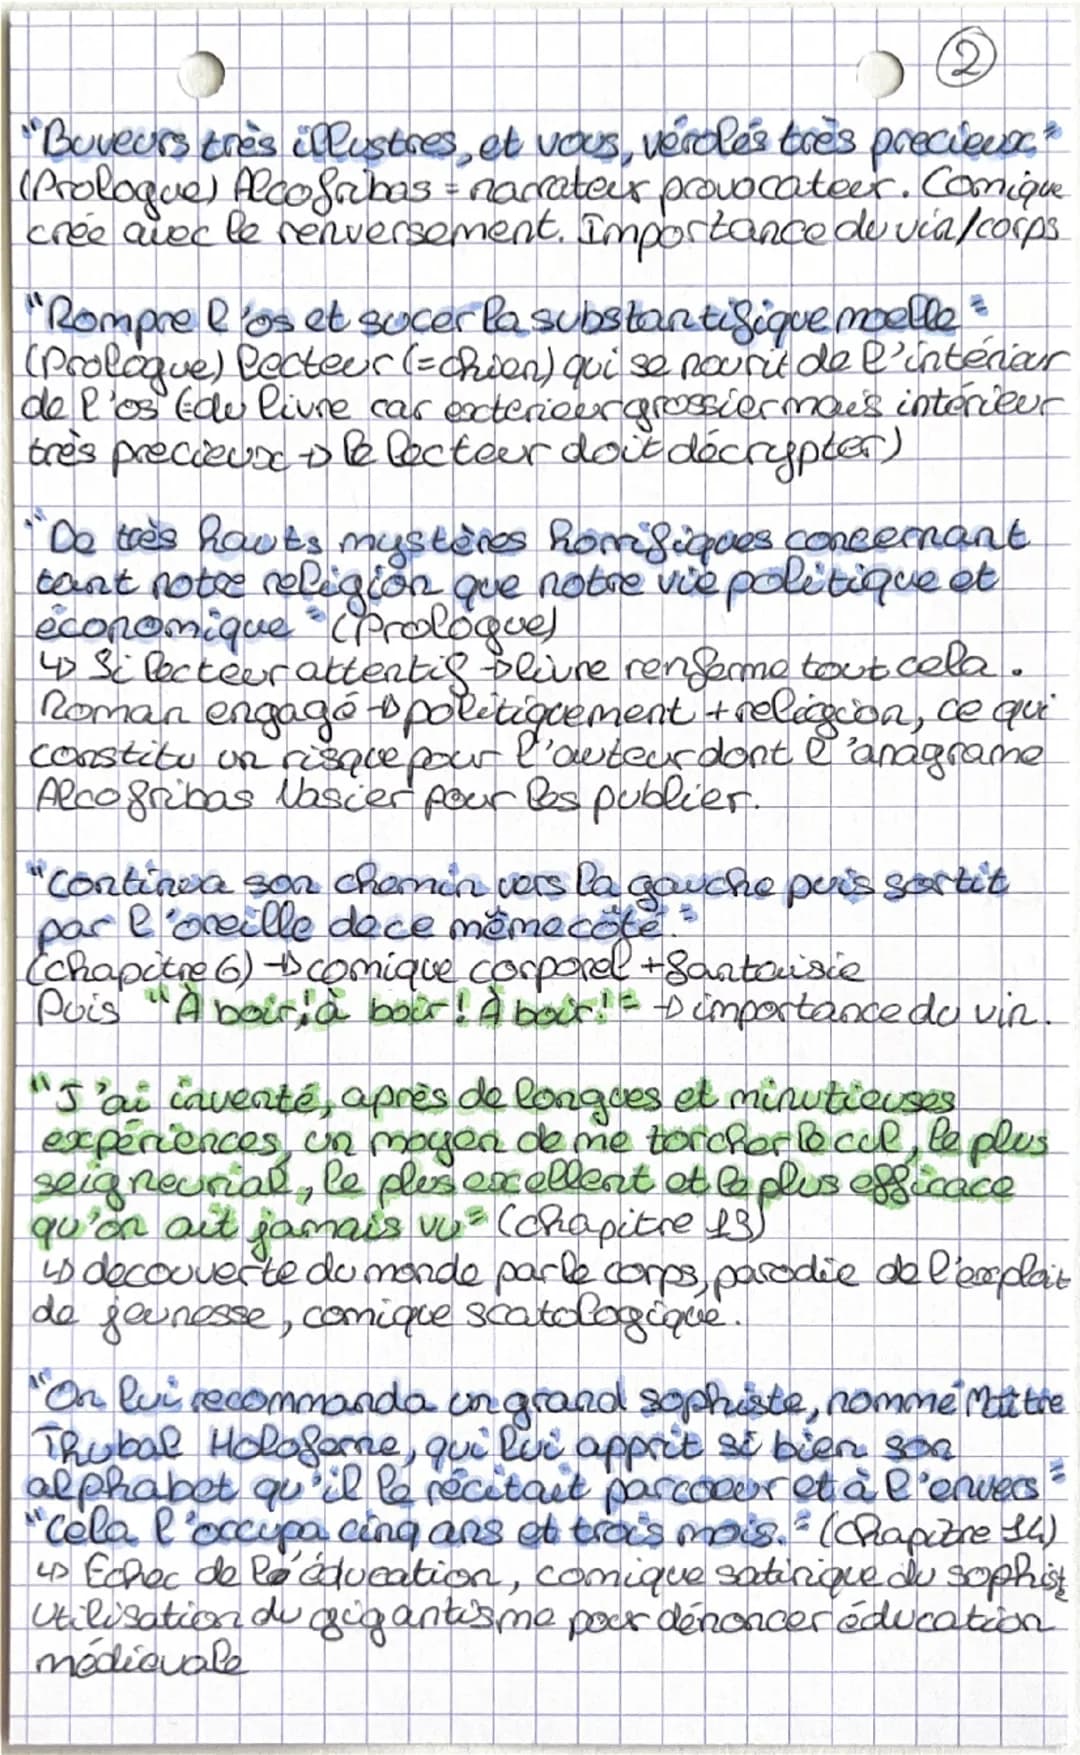 ②
"Buveurs très illustres, et vous, vérolés très precieux"
(Prologue) Alcofribas = narrateur provocateur. Comique
crée avec le renversement. Importance du vin/corps
"Rompre l'os et sucer la substantifique moelle"
(Prologue) lecteur (=chien) qui se nourit de l'intérieur
de l'os (=du livre car exterieur grossier mais intérieur
très precieux → le lecteur doit décrypter)
"De très hauts mystères horrifiques concernant
tant notre religion que notre vie politique et
économique" (Prologue)
↳ Si lecteur attentif → livre renferme tout cela.
Roman engagé → politiquement + religion, ce qui
constitu un risque pour l'auteur dont l'anagrame
Alcofribas Nasier pour les publier.
"continua son chemin vers la gauche puis sortit
par l'oreille de ce même côté."
(chapitre 6) → comique corporel + fantaisie
Puis "À boir, à boir! À boir!" → importance du vin.
"J'ai inventé, après de longues et minutieuses
expériences, un moyen de me torcher le cul, le plus
seigneurial, le plus excellent et le plus efficace
qu'on ait jamais vu" (chapitre 13)
↳ decouverte du monde par le corps, parodie de l'exploit
de jeunesse, comique scatologique.
"On lui recommanda un grand sophiste, nommé Maître
Thubal Holoferne, qui lui apprit si bien son
alphabet qu'il le récitait par coeur et à l'envers"
"Cela l'occupa cinq ans et trois mois." (Chapitre 14)
↳ Echec de l'éducation, comique satirique du sophiste
Utilisation du gigantisme pour dénoncer éducation
médievale